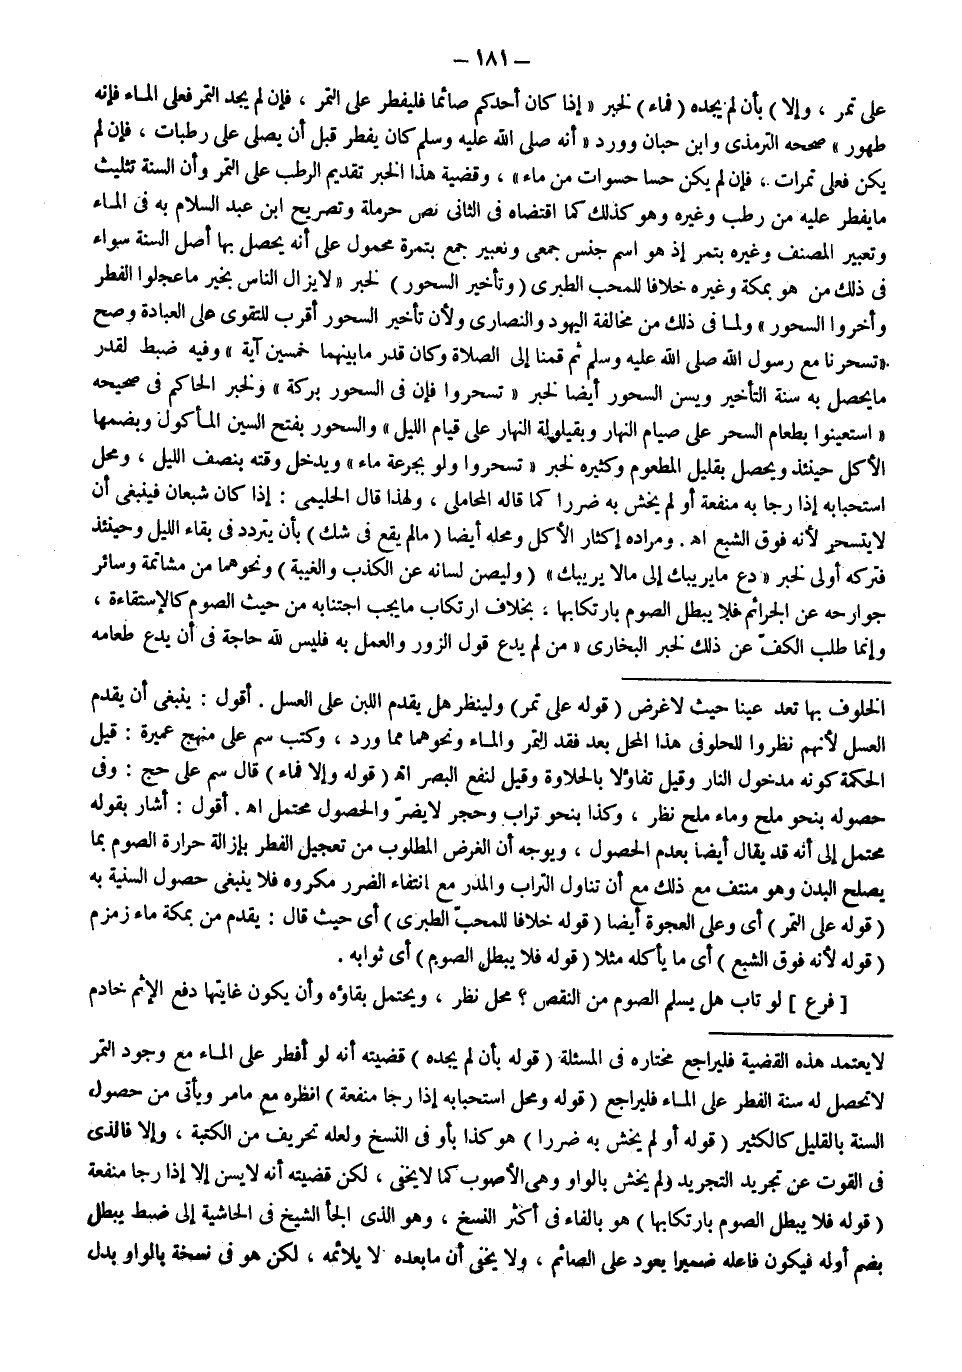 – ١٨١ –
على تمر ، وإلا ) بأن لم يجده ( فماء ) لخبر « إذا كان أحدكم صائما فليفطر على التمر ، فإن لم يجد التمر فعلى الماء فإنه
طهور » صححه الترمذى وابن حبان وورد « أنه صلى الله عليه وسلم كان يفطر قبل أن يصلى على رطبات ، فإن لم
يكن فعلى تمرات ، فإن لم يكن حسا حسوات من ماء » ، وقضية هذا الخبر تقديم الرطب على التمر وأن السنة تثليث
مايفطر عليه من رطب وغيره وهو كذلك كما اقتضاه فى الثانى نص حرملة وتصريح ابن عبد السلام به فى الماء
وتعبير المصنف وغيره بتمر إذ هو اسم جنس جمعى وتعبير جمع بتمرة محمول على أنه يحصل بها أصل السنة سواء
فى ذلك من هو بمكة وغيره خلافا للمحب الطبرى ( وتأخير السحور ) لخبر « لايزال الناس بخير ماعجلوا الفطر
وأخروا السحور » ولما فى ذلك من مخالفة اليهود والنصارى ولأن تأخير السحور أقرب للتقوى على العبادة وصح
« تسحرنا مع رسول الله صلى الله عليه وسلم ثم قمنا إلى الصلاة وكان قدر مابينهما خمسين آية » وفيه ضبط لقدر
مايحصل به سنة التأخير ويسن السحور أيضا لخبر « تسحروا فإن فى السحور بركة » ولخبر الحاكم فى صحيحه
« استعينوا بطعام السحر على صيام النهار وبقيلولة النهار على قيام الليل » والسحور بفتح السين المأكول وبضمها
الأكل حينئذ ويحصل بقليل المطعوم وكثيره لخبر « تسحروا ولو بجرعة ماء » ويدخل وقته بنصف الليل ، ومحل
استحبابه إذا رجا به منفعة أو لم يخش به ضررا كما قاله المحاملى ، ولهذا قال الحليمى : إذا كان شبعان فينبغى أن
لايتسحر لأنه فوق الشبع اه . ومراده إكثار الأكل ومحله أيضا ( مالم يقع فى شك ) بأن يتردد فى بقاء الليل وحينئذ
فتركه أولى لخبر « دع مايريبك إلى مالا يريبك » ( وليصن لسانه عن الكذب والغيبة ) ونحوهما من مشاتمة وسائر
جوارحه عن الجرائم فلا يبطل الصوم بارتكابها ، بخلاف ارتكاب مايجب اجتنابه من حيث الصوم كالإستقاءة ،
وإنما طلب الكفّ عن ذلك لخبر البخارى « من لم يدع قول الزور والعمل به فليس لله حاجة فى أن يدع طعامه
الخلوف بها تعد عينا حيث لاغرض ( قوله على تمر ) ولينظر هل يقدم اللبن على العسل . أقول : ينبغى أن يقدم
العسل لأنهم نظروا للحلوفى هذا المحل بعد فقد التمر والماء ونحوهما مما ورد ، وكتب سم على منهج عميرة : قيل
الحكمة كونه مدخول النار وقيل تفاؤلا بالحلاوة وقيل لنفع البصر اه ( قوله وإلا فماء ) قال سم على حج : وفى
حصوله بنحو ملح وماء ملح نظر ، وكذا بنحو تراب وحجر لايضرّ والحصول محتمل اه . أقول : أشار بقوله
محتمل إلى أنه قد يقال أيضا بعدم الحصول ، ويوجه أن الغرض المطلوب من تعجيل الفطر بإزالة حرارة الصوم بما
يصلح البدن وهو منتف مع ذلك مع أن تناول التراب والمدر مع انتفاء الضرر مكروه فلا ينبغى حصول السنية به
( قوله على التمر ) أى وعلى العجوة أيضا ( قوله خلافا للمحبّ الطبرى ) أى حيث قال : يقدم من بمكة ماء زمزم
( قوله لأنه فوق الشبع ) أى ما يأكله مثلا ( قوله فلا يبطل الصوم ) أى ثوابه .
[ فرع ] لو تاب هل يسلم الصوم من النقص ؟ محل نظر ، ويحتمل بقاؤه وأن يكون غايتها دفع الإثم خادم
لايعتمد هذه القضية فليراجع مختاره فى المسئلة ( قوله بأن لم يجده ) قضيته أنه لو أفطر على الماء مع وجود التمر
لاتحصل له سنة الفطر على الماء فليراجع ( قوله ومحل استحبابه إذا رجا منفعة ) انظره مع مامر ويأتى من حصول
السنة بالقليل كالكثير ( قوله أو لم يخش به ضررا ) هو كذا بأو فى النسخ ولعله تحريف من الكتبة ، وإلا فالذى
فى القوت عن تجريد التجريد ولم يخش بالواو وهى الأصوب كما لايخفى ، لكن قضيته أنه لايسن إلا إذا رجا منفعة
( قوله فلا يبطل الصوم بارتكابها ) هو بالفاء فى أكثر النسخ ، وهو الذى ألجأ الشيخ فى الحاشية إلى ضبط يبطل
بضم أوله فيكون فاعله ضميرا يعود على الصائم ، ولا يخفى أن مابعده لا يلائمه ، لكن هو فى نسخة بالواو بدل